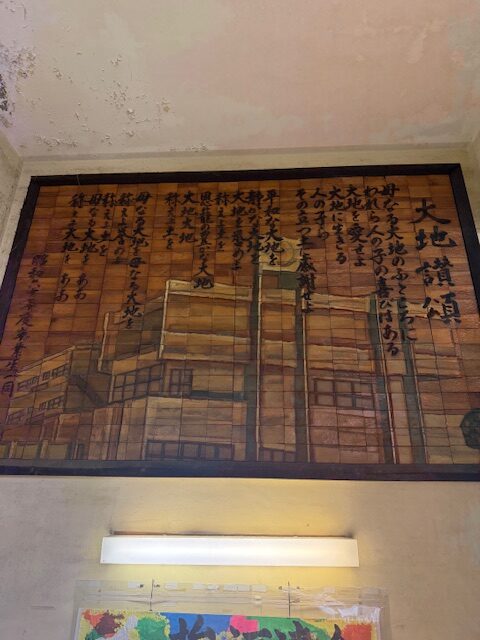 大地讃頌
母なる大地のふところに
われら人の子の喜びはある
大地を愛せよ
大地に生きる
人の子ら
その立つ土に感謝せよ
平和な大地を
静かな大地を
大地を誉めよ
称えよ土を
恩寵の豊かな大地
大地大地
称えよ土を
母なる大地を
称えよ大地を ああ
母なる大地を ああ
称えよ大地を ああ
昭和六十
卒業生一同